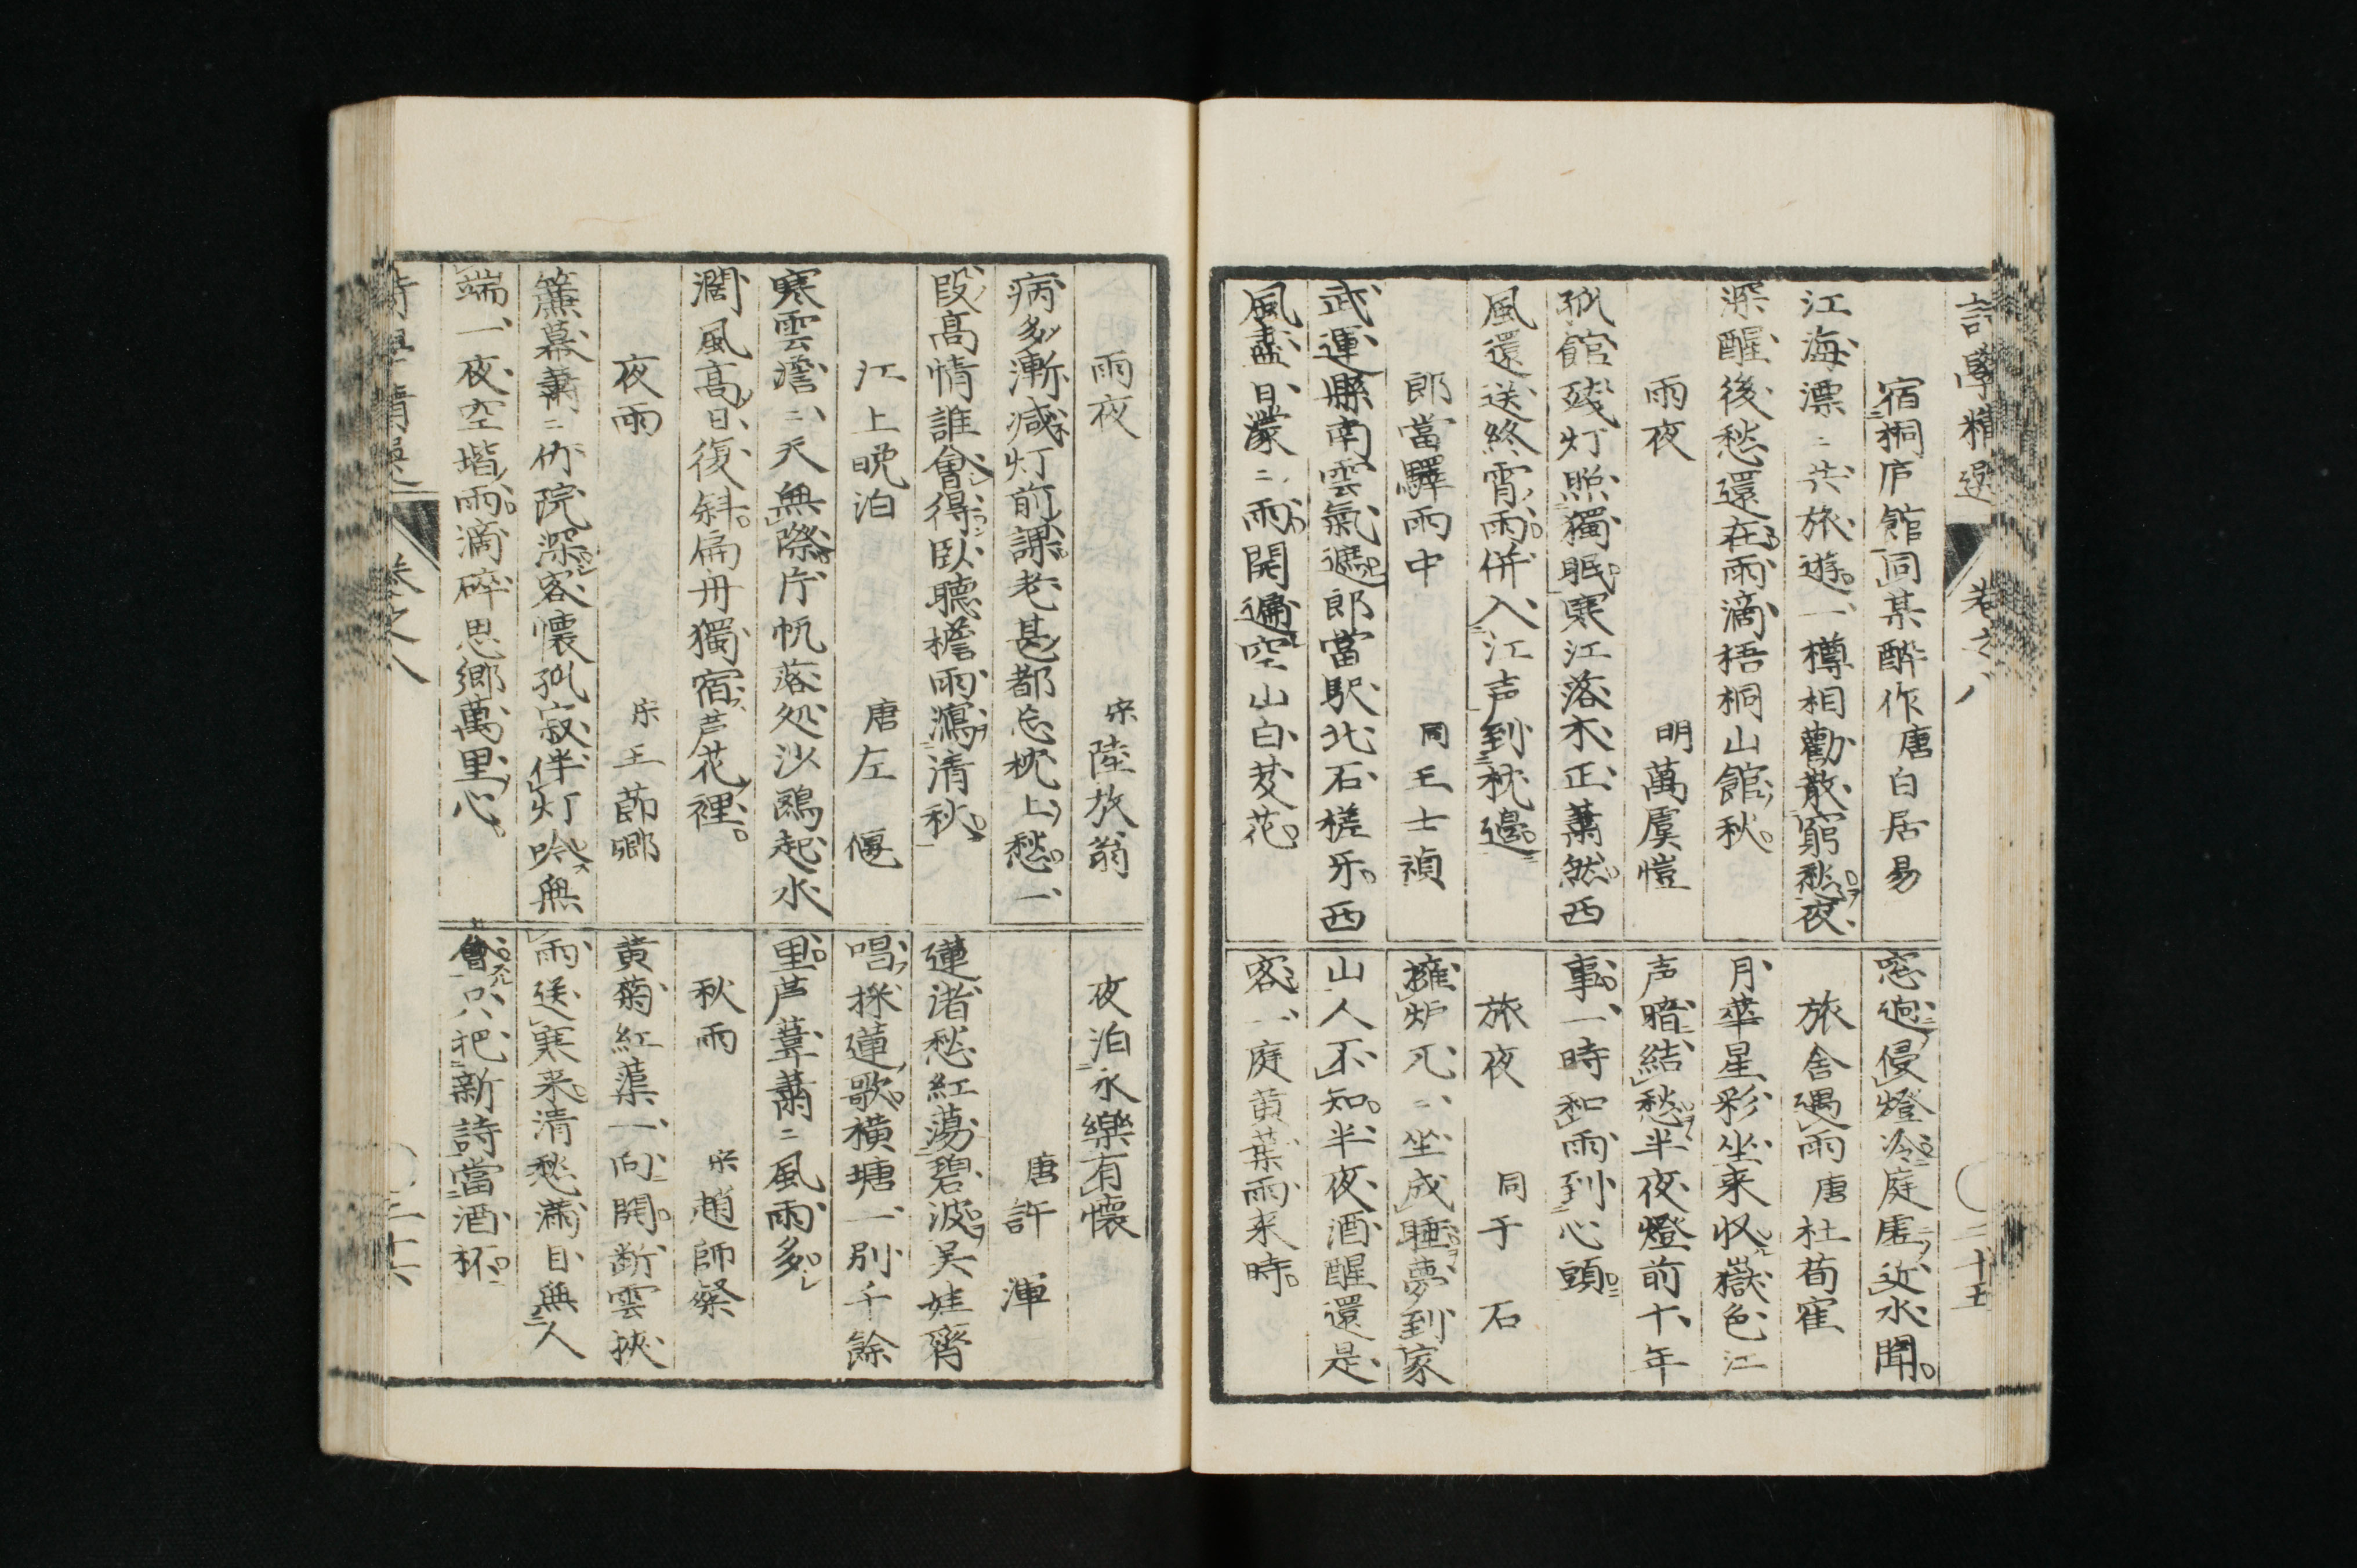 詩學精選　卷之八　二十五
宿桐庐館同某酔作　唐　白居易
江海漂〻共旅遊一樽相勸散窮愁夜
深醒後愁還在雨滴梧桐山館秋
雨夜　明　萬虞愷
孤館残灯照獨眠寒江落木正蕭然西
風還送終宵雨併入江声到枕邉
郎當驛雨中　同　王士禎
武連縣南雲氣遮郎當駅北石槎牙西
風盡日濛〻雨開遍空山白芨花
窓逈侵燈冷庭虚近水聞
旅舎遇雨　唐　杜荀寉
月華星彩坐来収嶽色江
声暗結愁半夜燈前十年
事一時和雨到心頭
旅夜　同　于石
擁炉兀〻坐成睡夢到家
山人不知半夜酒醒還是
客一庭黄葉雨来時
雨夜　宋　陸放翁
病多漸减灯前課老甚都忘枕上愁一
段髙情誰會得臥聽檐雨瀉清秋
江上晩泊　唐　左偃
寒雲澹〻天無際片帆落処沙鷗起水
濶風髙日復斜扁舟獨宿芦花裡
夜雨　宋　王莭卿
簾幕蕭〻竹院深客懐孤寂伴灯吟無
端一夜空堦雨滴碎思郷萬里心
夜泊永樂有懐
唐　許渾
蓮渚愁紅蕩碧波吴娃齊
唱採蓮歌横塘一別千餘
里芦葦蕭〻風雨多
秋雨　宋　趙師粲
黄菊紅蕖一向開断雲挾
雨送寒来清愁满目無人
會只把新詩當酒杯
詩學精選　卷之八　二十六